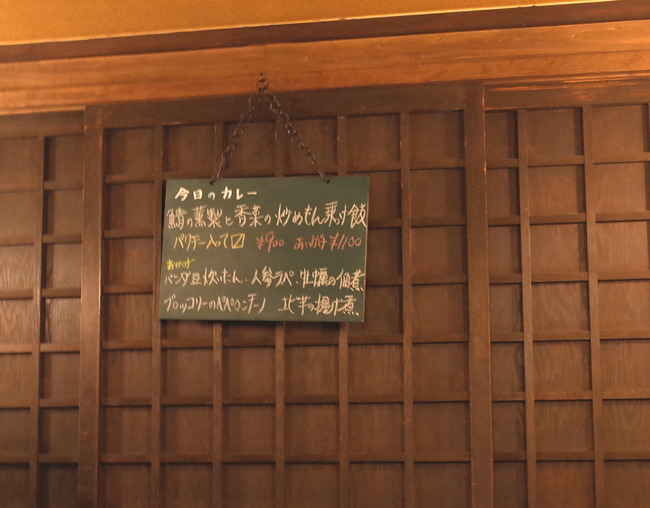 今日のカレー
鯖の薫製と香菜の炒めもん乗り飯
¥900 あいがけ ¥1100
おかず
パンダ豆炊いたん・人参ラペ・牡蠣の佃煮
ブロッコリーのペペロンチーノ 北芋の揚げ煮